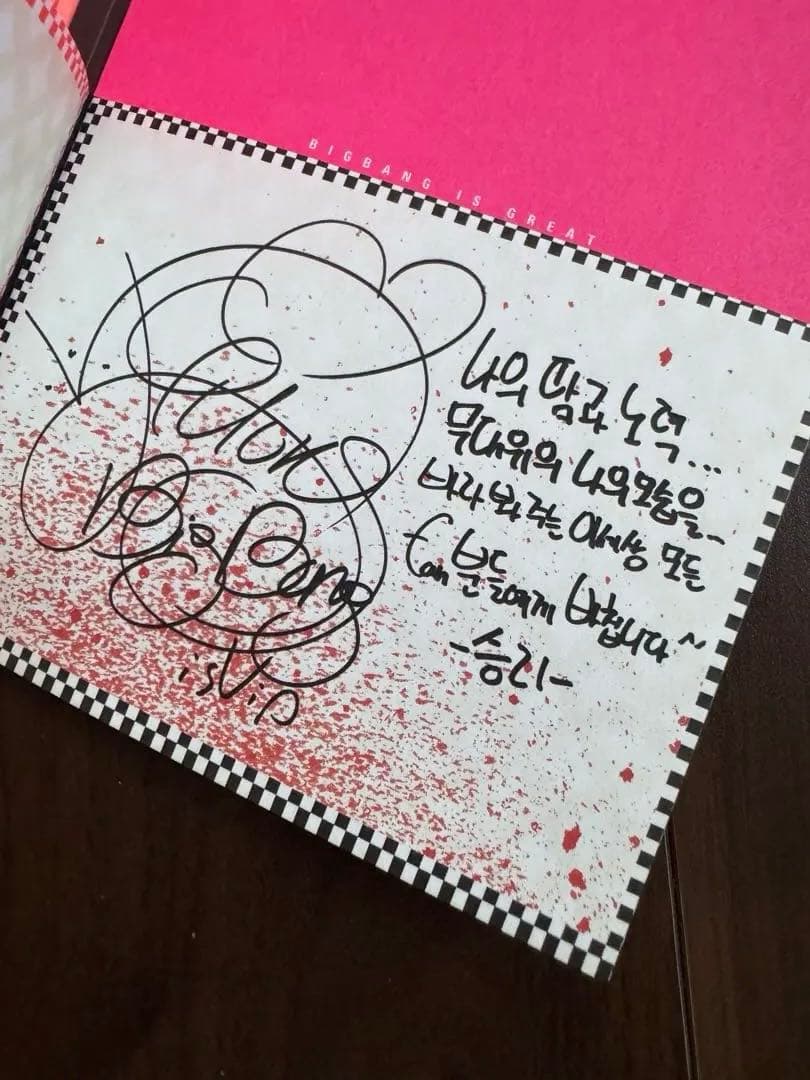 BIGBANG IS GREAT
나의 땀과 노력...
무대위의 나의모습을~
바라봐 주는 이세상 모든
fan분들에게 바칩니다~
-승리-
BigBang
is V.i.P